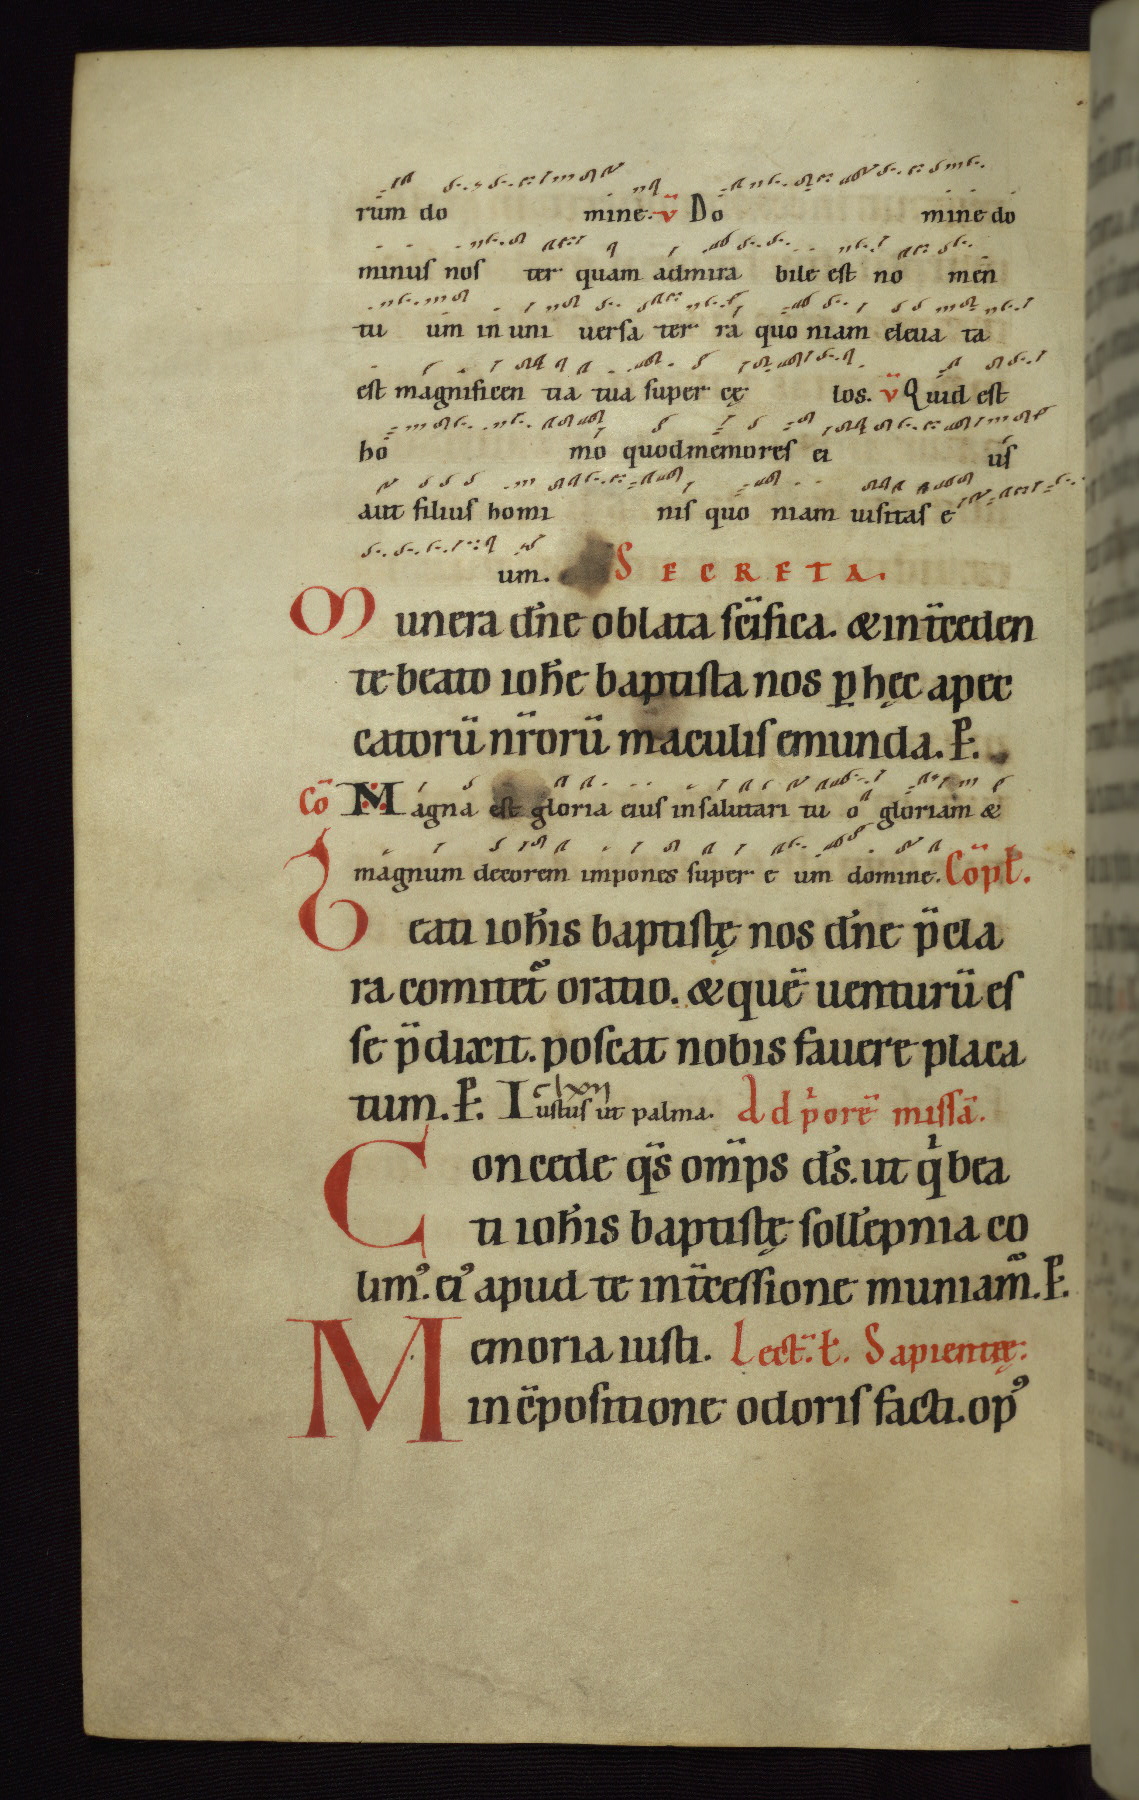 rum do mine. v̄ Do mine do
minus nos ter quam admira bile est no men
tu um in uni uersa ter ra quo niam eleua ta
est magnificen tia tua super cę los. v̄ Quid est
ho mo quod memores ei us
aut filius homi nis quo niam uisitas e
um. SECRETA.
Munera dn̄e oblata sc̄ifica. & int̄ceden
te beato ioh̄e baptista nos ꝑ hęc a pec
catorū nr̄orū maculis emunda. P̄.
Cō Magna est gloria eius in salutari tu o gloriam &
magnum decorem impones super e um domine. Cōpł.
Beati ioh̄is baptistę nos dn̄e p̄cla
ra comitet̄ oratio. & quē uenturū es
se p̄dixit. poscat nobis fauere placa
tum. P̄. clxvii Iustus ut palma. Ad p͛orē missā.
Concede qs̄ om̄ps ds̄. ut qͥ bea
ti ioh̄is baptistę soll̄epnia co
limꝰ. eiꝰ apud te int̄cessione muniam̄. P̄.
Memoria iusti. Lect̄. ł. Sapientię.
in c̄positione odoris facti. opꝰ